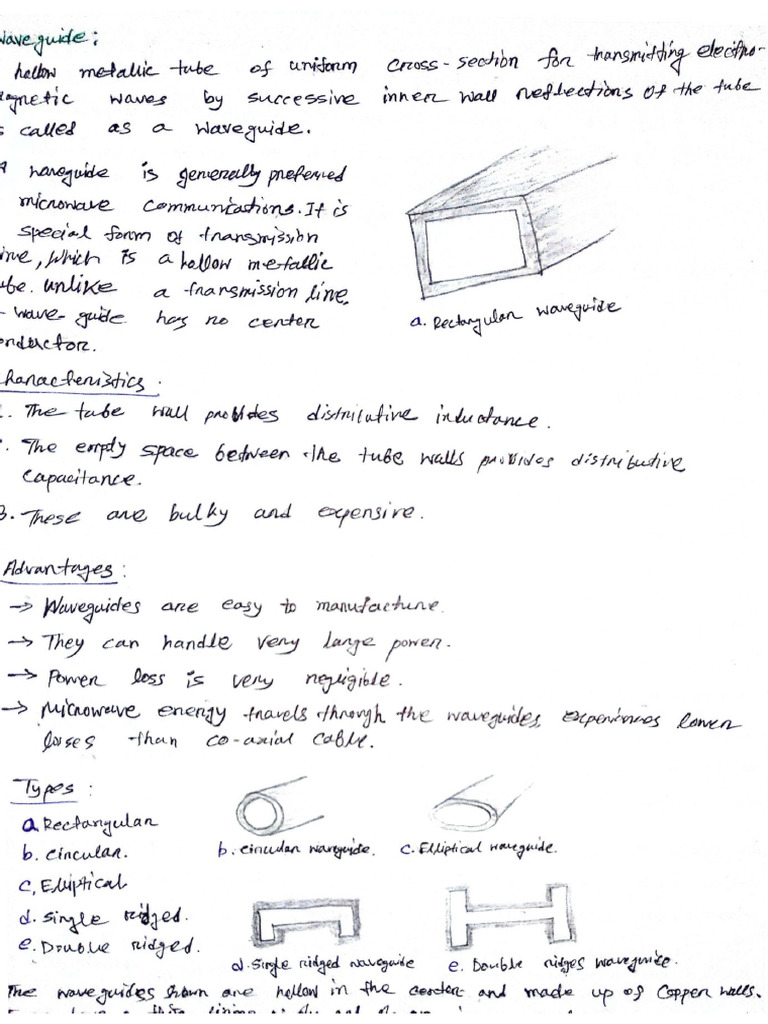 Waveguide:
hollow metallic tube of uniform cross-section for transmitting electro-
magnetic waves by successive inner wall reflections of the tube
is called as a waveguide.
A waveguide is generally preferred
microwave communications. It is
special form of transmission
line, which is a hollow metallic
tube. unlike a transmission line,
wave-guide has no center
conductor.
a. Rectangular waveguide
Characteristics.
1. The tube wall provides distributive inductance.
2. The empty space between the tube walls provides distributive
capacitance.
3. These are bulky and expensive.
Advantages:
→ Waveguides are easy to manufacture.
→ They can handle very large power.
→ Power loss is very negligible.
→ Microwave energy travels through the waveguides experiences lower
losses than co-axial cable.
Types:
a. Rectangular
b. Circular.
c, Elliptical
d. Single ridged.
e. Double ridged.
b. Circular waveguide.
c. Elliptical waveguide.
d. Single ridged waveguide
e. Double ridges waveguide.
The waveguides shown are hollow in the center and made up of Copper walls.